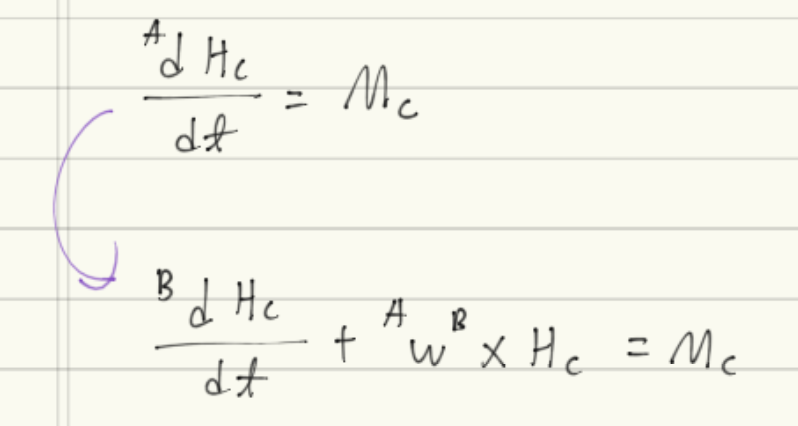 ᴬd H_c / dt = M_c
ᴮd H_c / dt + ᴬω ᴮ × H_c = M_c